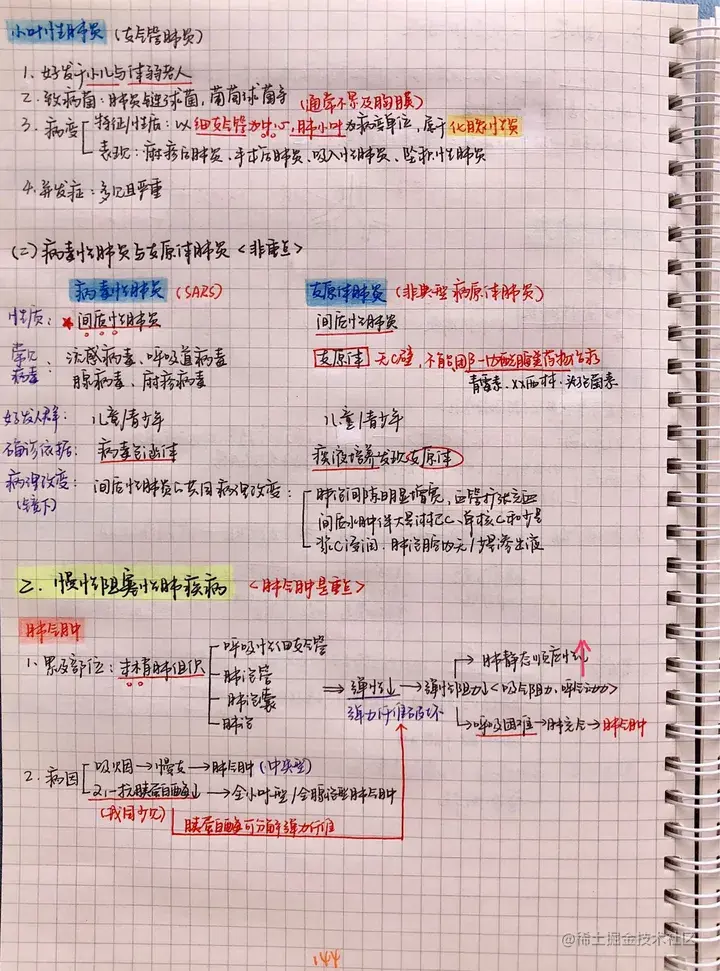 小叶性肺炎（支气管肺炎）
1. 好发于小儿与体弱老人
2. 致病菌：肺炎链球菌，葡萄球菌等（通常不累及胸膜）
3. 病变 特征/性质：以细支气管为中心，肺小叶为病变单位，属于化脓性炎
表现：麻疹后肺炎、手术后肺炎、吸入性肺炎、坠积性肺炎
4. 并发症：多见且严重
(二) 病毒性肺炎与支原体肺炎<非重点>
病毒性肺炎（SARS） 支原体肺炎（非典型病原体肺炎）
性质：★间质性肺炎 间质性肺炎
常见病毒：流感病毒、呼吸道病毒 支原体 无C壁，不能用β-内酰胺类药物治疗
腺病毒、麻疹病毒 青霉素、xx西林、头孢菌素
好发人群：儿童/青少年 儿童/青少年
确诊依据：病毒包涵体 痰液培养发现支原体
病理改变：间质性肺炎的共同病理改变：肺泡间隔明显增宽，血管扩张充血
(镜下) 间质水肿伴大量淋巴C、单核C和少量
浆C浸润：肺泡腔内无/少量渗出液
二. 慢性阻塞性肺疾病 <肺气肿是重点>
肺气肿
1. 累及部位：末梢肺组织 呼吸性细支气管
肺泡管
肺泡囊
肺泡
⇒ 弹性↓ → 弹性阻力↓<吸气阻力、呼气动力>
弹力纤维破坏
→ 肺静态顺应性↑
→ 呼吸困难→肺充气→肺气肿
2. 病因 吸烟→慢支→肺气肿（中央型）
α1-抗胰蛋白酶↓→全小叶型/全腺泡型肺气肿
(我国少见) 胰蛋白酶可分解弹力纤维
144
@稀土掘金技术社区